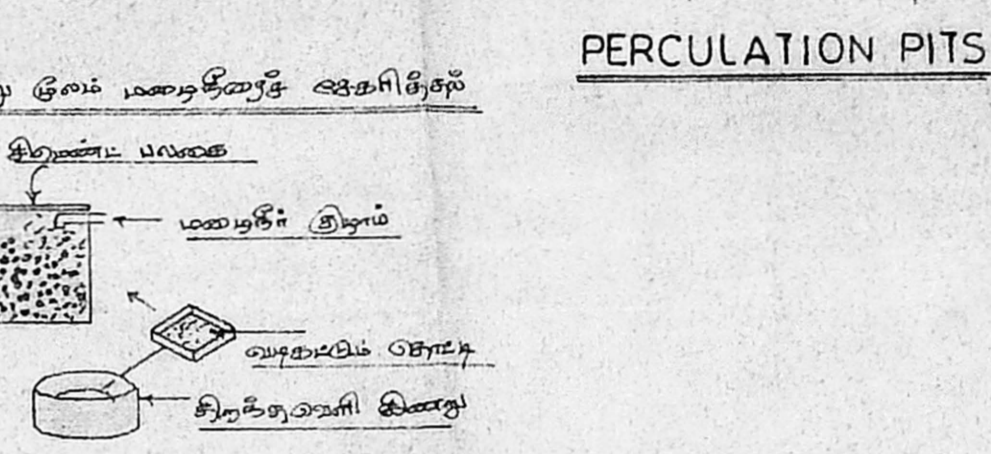 PERCULATION PITS
மூலம் மழைநீரைச் சேகரித்தல்
சிமெண்ட் பலகை
மழைநீர் குழாய்
வடிகட்டும் தொட்டி
திறந்தவெளி கிணறு